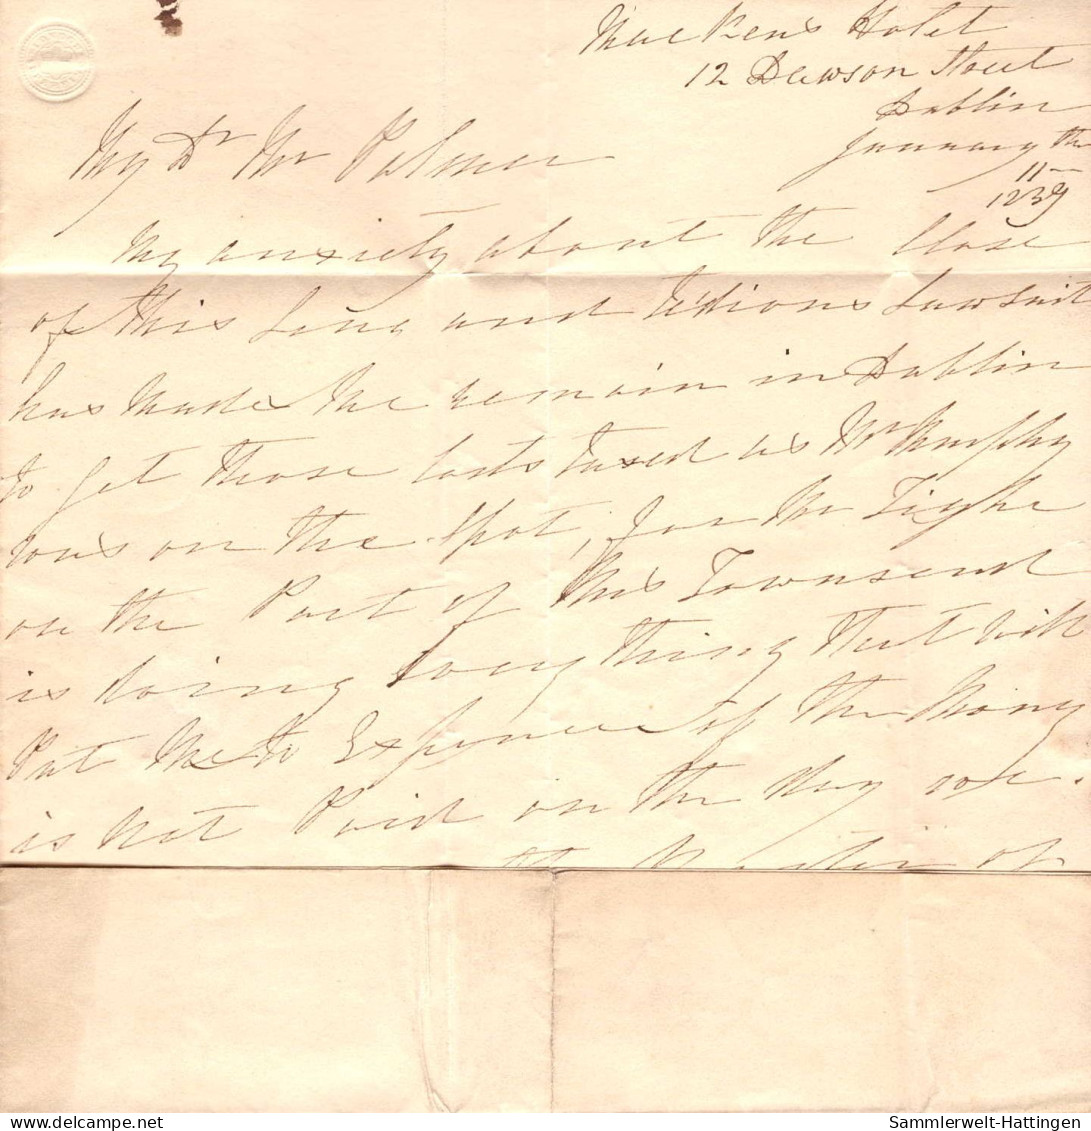 Mackens Hotel
12 Dawson Street
Dublin
January th
11
1839
My Dr Mr Palmer
My anxiety about the Close
of this Long and Tedious Lawsuit
has Made Me remain in Dublin
to get those Costs taxed as Mr Murphy
on the Spot, for Mr Tighe
on the Part of Mrs Townsend
is doing Every thing that will
Put Me to Expence if the Mony
is Not Paid on the Day
the Master
Sammlerwelt-Hattingen